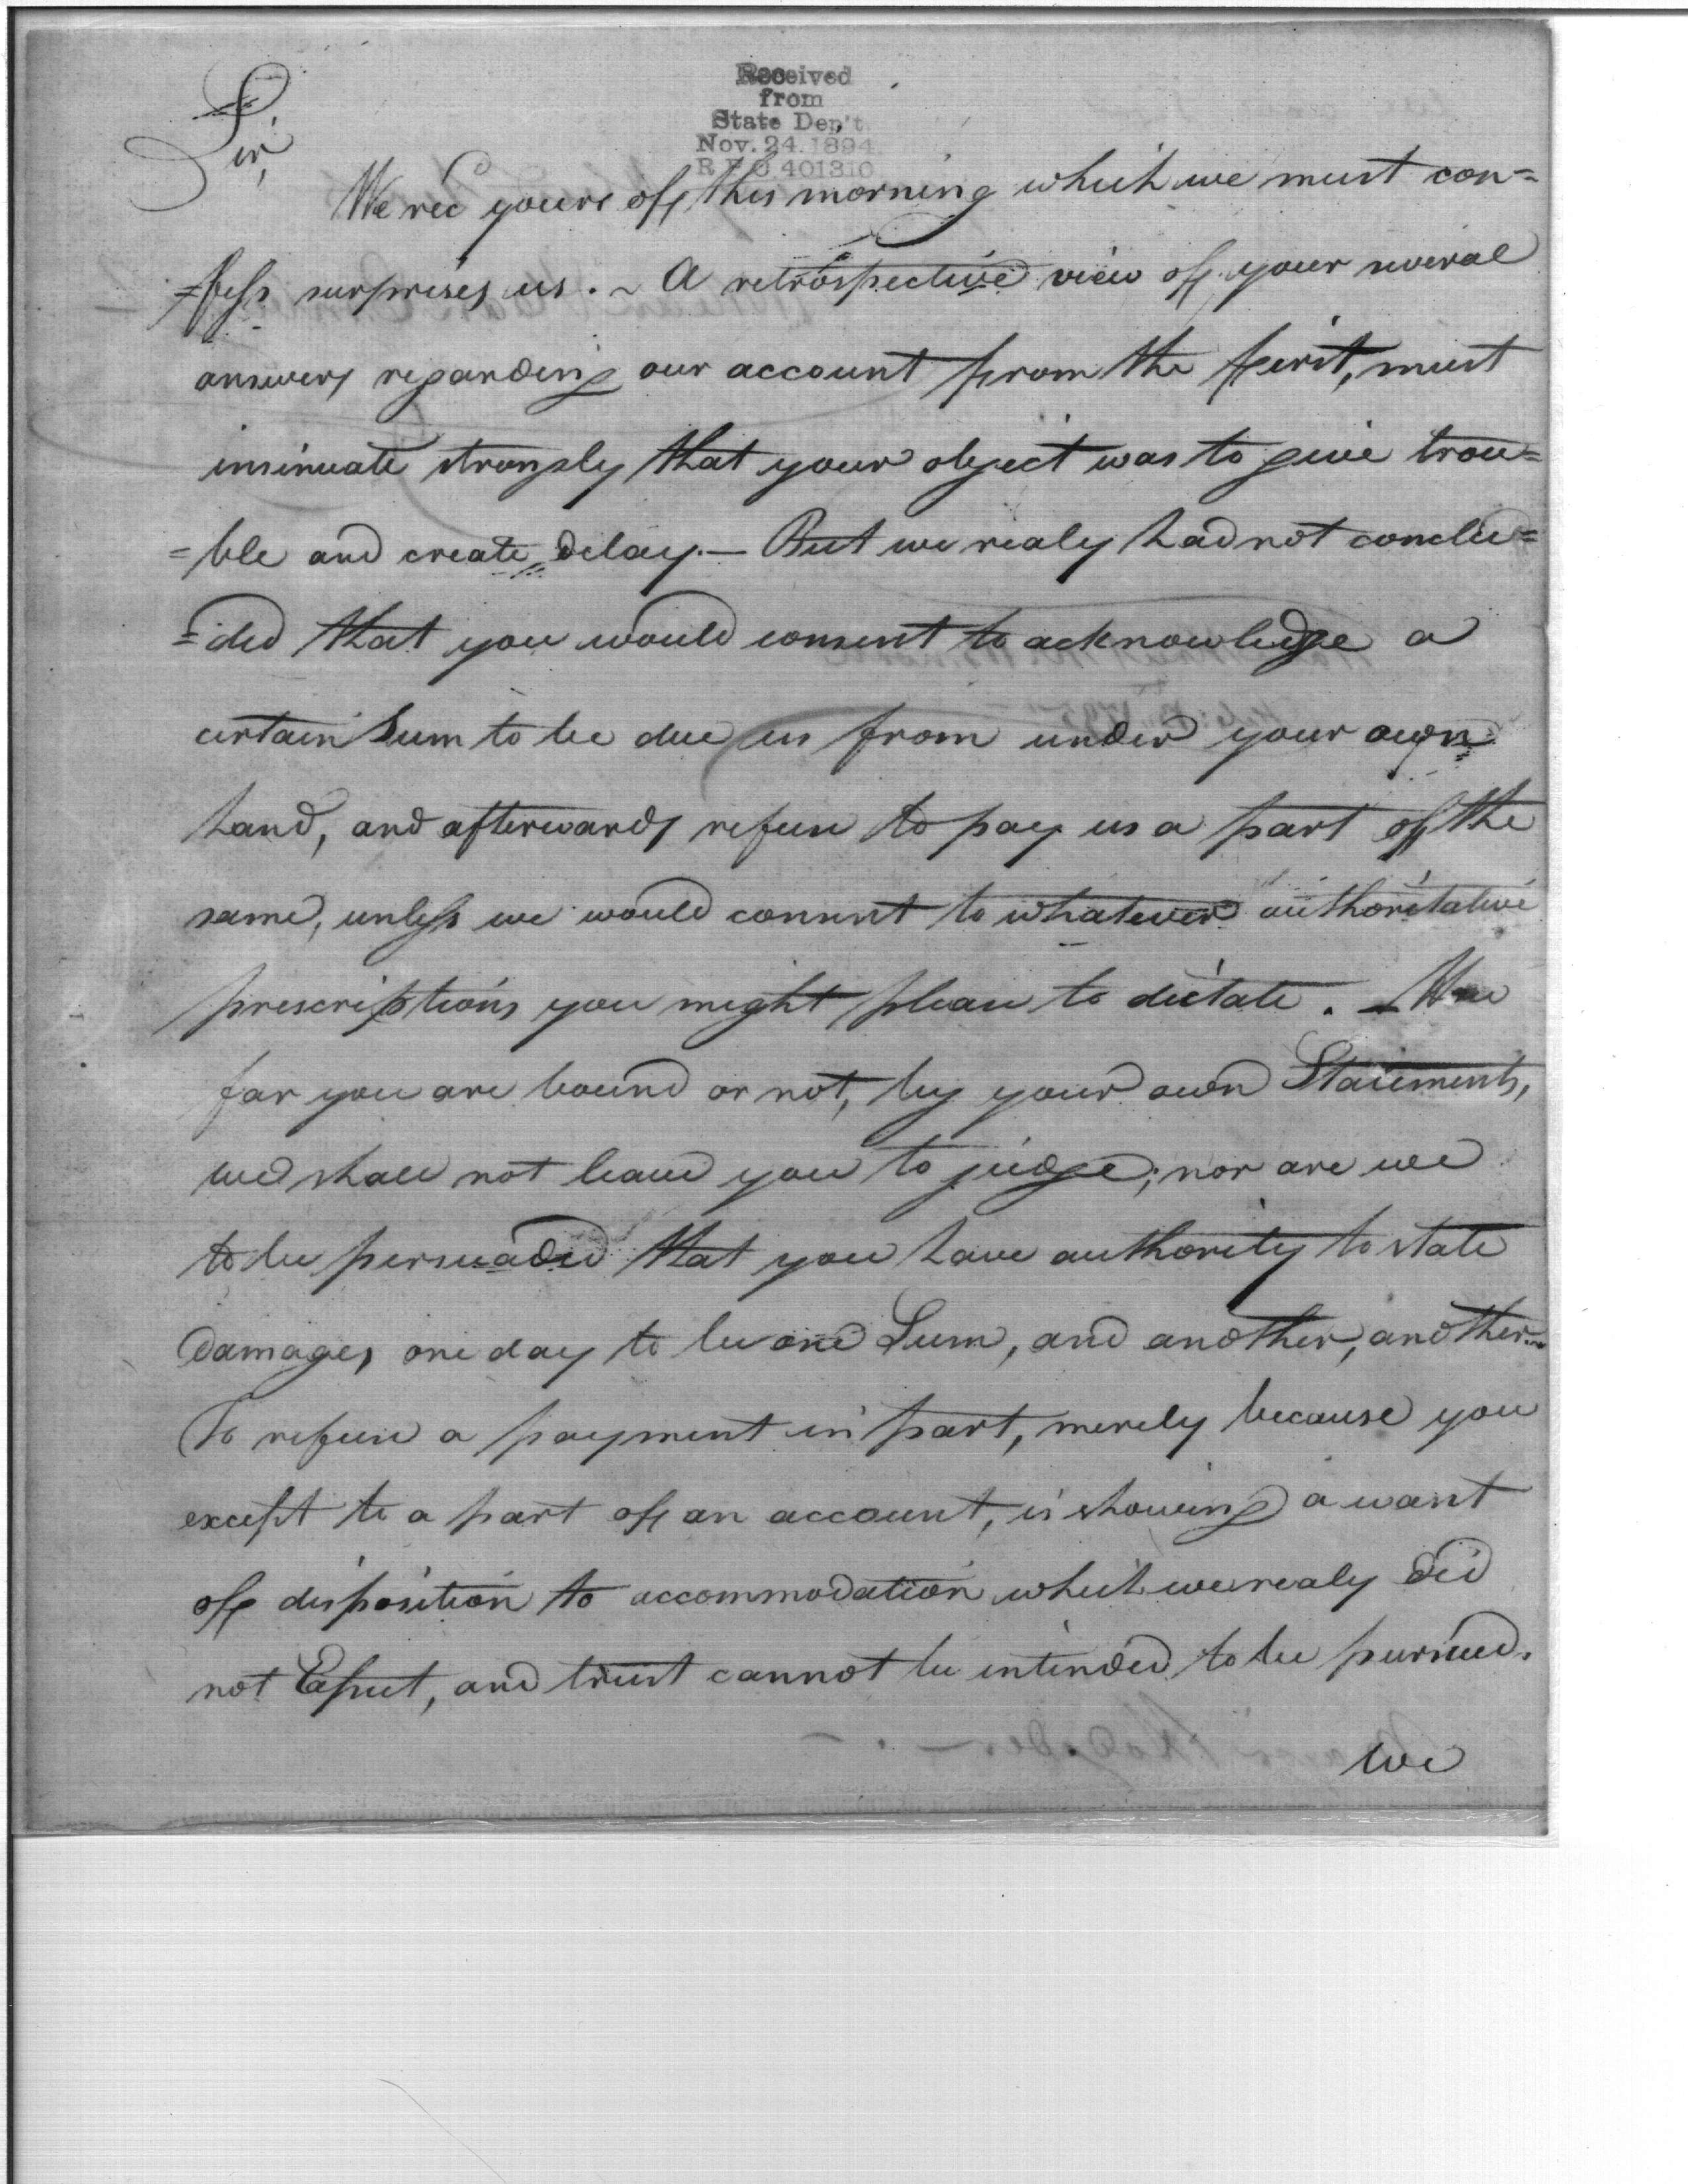 Received
from
State Dep't.
Nov. 24. 1894
R P O 401310
Sir,
We rec yours of this morning which we must con=
=fess surprises us. ~ A retrospective view of your several
answers regarding our account from the first, must
insinuate strongly that your object was to give trou=
=ble and create delay. — But we realy had not conclu=
=ded that you would consent to acknowledge a
certain Sum to be due us from under your own
hand, and afterwards refuse to pay us a part of the
same, unless we would consent to whatever authoritative
prescriptions you might please to dictate. — How
far you are bound or not, by your own Statements,
we shall not leave you to judge; nor are we
to be persuaded that you have authority to state
Damages one day to be one Sum, and another, another —
To refuse a payment in part, merely because you
except to a part of an account, is showing a want
of disposition to accommodation which we realy did
not Expect, and trust cannot be intended to be pursued.
we